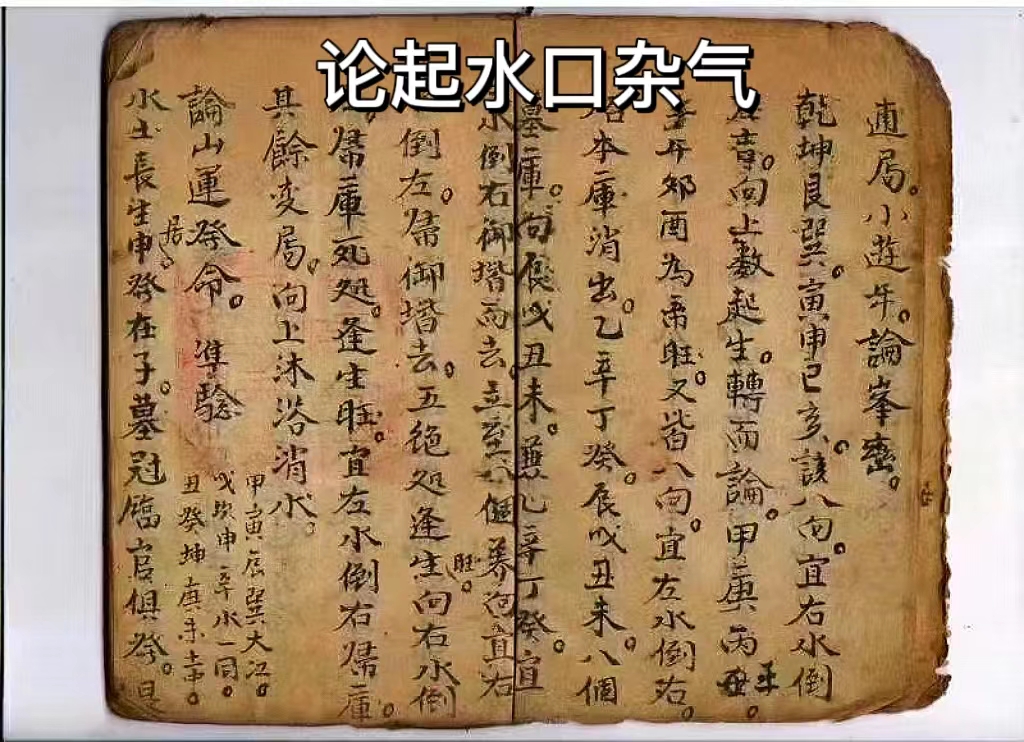 论起水口杂气
逋局。小遊年。論峯巒。
乾坤艮巽。寅申巳亥。該八向。宜右水倒
向上數起生。轉而論。甲庚丙
午卯酉為帝旺。又皆八向。宜左水倒右。
本庫消出。乙辛丁癸。辰戌丑未。八個
墓庫向。辰戌丑未。兼乙辛丁癸。宜
水倒右御堦而去。立至八個養向。宜右
倒左。帰御堦去。五絶処逢生向。右水倒
旺。
帰庫死処。逢生旺。宜左水倒右帰庫。
其餘变局。向上沐浴消水。
甲寅辰巽大江。
戌坎申辛水一同。
丑癸坤庚未土中。
論山運發命。準驗
居。
水土長生申發在子。墓冠臨官俱發。